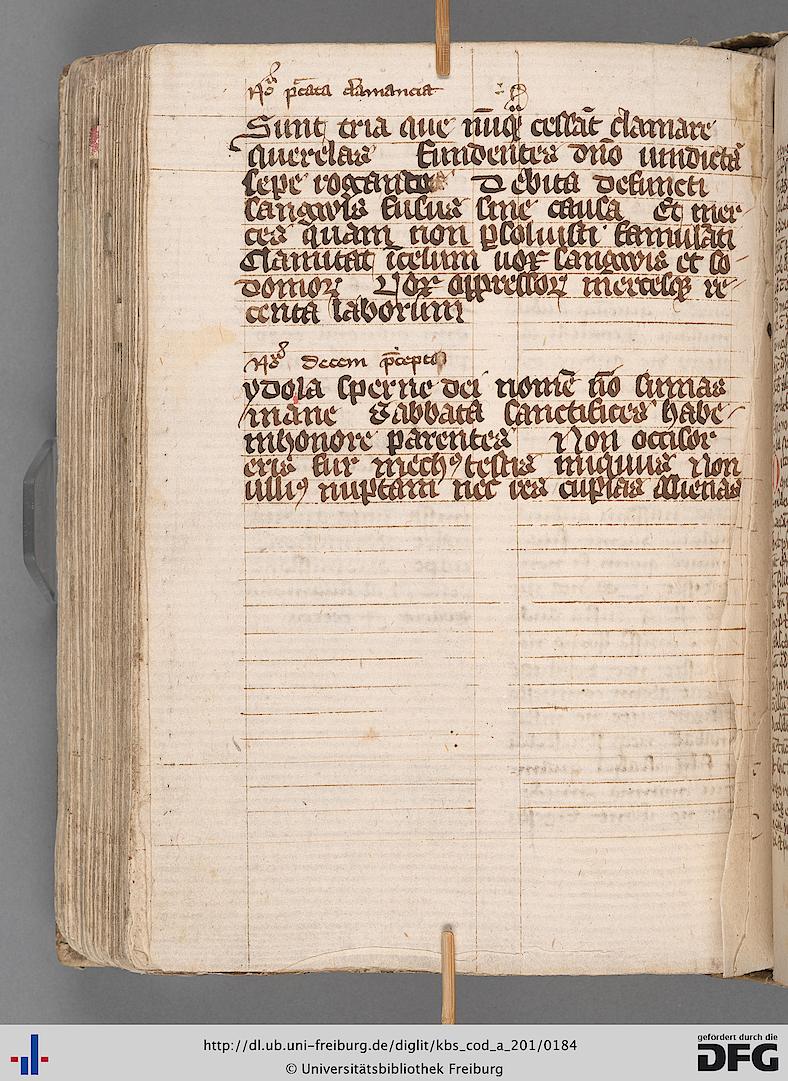 Nota pctata clamancia
Sunt tria que nūqȝ cessāt clamare
querelas Eundentes dn̄o uindictā
sepe rogantes Debita defuncti
sangwis fusus sine causa Et mer-
ces quam non ꝑsoluisti famulāti
Clamitat īcelum uox sangwis et so-
domoꝝ Uox oppressoꝝ mercesqȝ re-
tenta laborum
decem p̄cepta
ydola sperne dei nomē nō sumas
inane Sabbata sanctifices habe-
inhonore parentes Non occisor
eris fur mechꝰ testis iniquus Non
illiꝰ nuptam nec res cupias alienas
http://dl.ub.uni-freiburg.de/diglit/kbs_cod_a_201/0184
© Universitätsbibliothek Freiburg
gefördert durch die
DFG